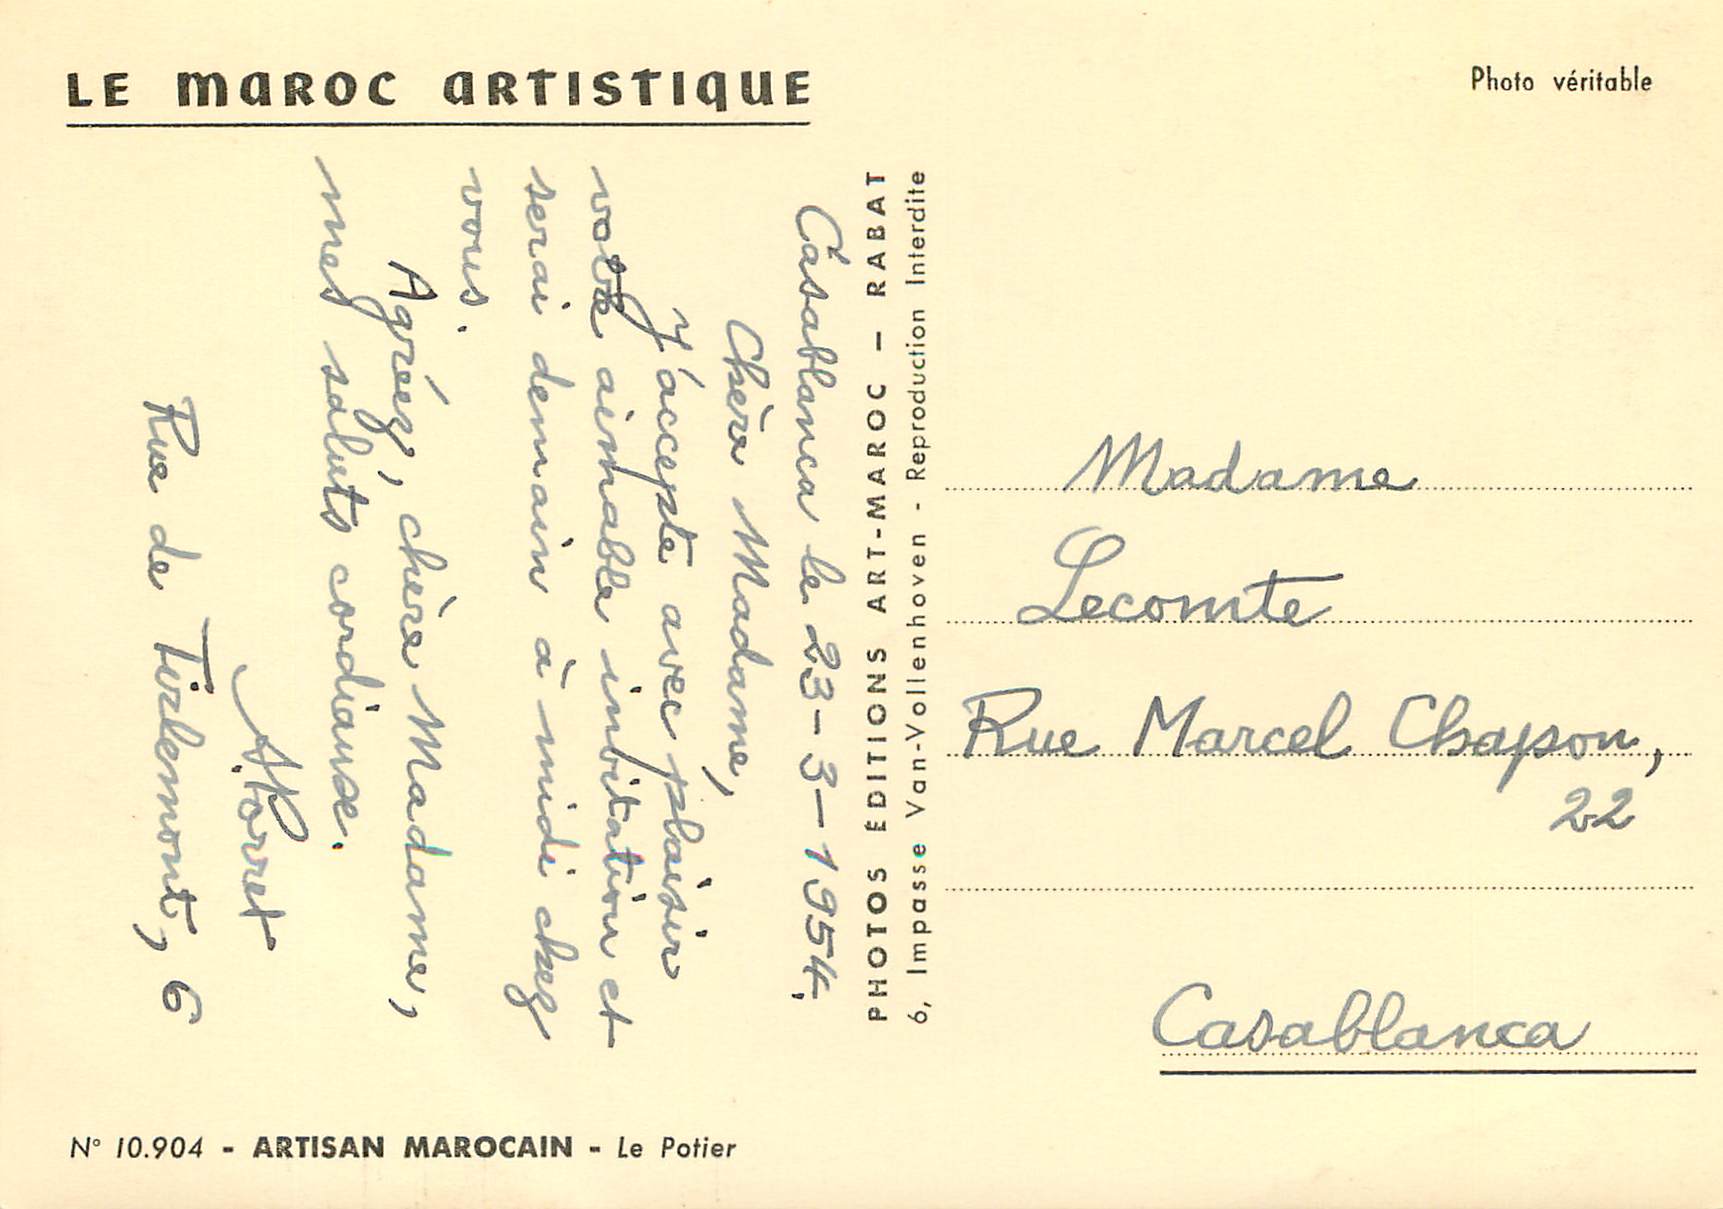 LE MAROC ARTISTIQUE
Photo véritable
Casablanca le 23-3-1954.
Chère Madame,
J'accepte avec plaisir
votre aimable invitation et
serai demain à midi chez
vous.
Agréez, chère Madame,
mes saluts cordiaux.
A. Porret
Rue de Tirlemont, 6
PHOTOS ÉDITIONS ART-MAROC – RABAT
6, Impasse Van-Vollenhoven - Reproduction Interdite
Madame
Lecomte
Rue Marcel Chapon,
22
Casablanca
N° 10.904 - ARTISAN MAROCAIN - Le Potier